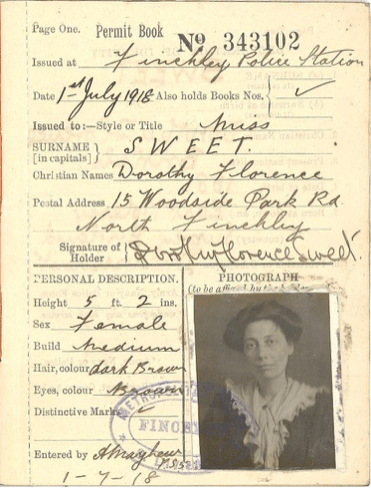 Page One. Permit Book No 343102
Issued at Finchley Police Station
Date 1st July 1918 Also holds Books Nos. ✓
Issued to:—Style or Title Miss
SURNAME [in capitals] } SWEET.
Christian Names Dorothy Florence
Postal Address 15 Woodside Park Rd.
North Finchley
Signature of Holder } Dorothy Florence Sweet.
PERSONAL DESCRIPTION.
Height 5 ft. 2 ins.
Sex Female
Build Medium
Hair, colour dark Brown
Eyes, colour Brown
Distinctive Marks ✓
Entered by A Mayhew
1-7-18
PHOTOGRAPH
(to be affixed by
METRO
FINCH